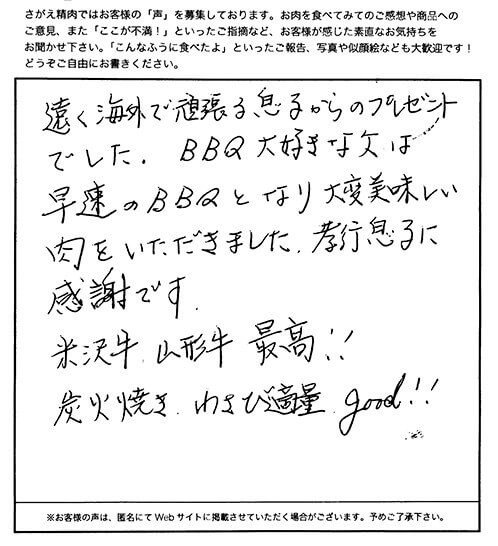 さがえ精肉ではお客様の「声」を募集しております。お肉を食べてみてのご感想や商品への
ご意見、また「ここが不満！」といったご指摘など、お客様が感じた素直なお気持ちを
お聞かせ下さい。「こんなふうに食べたよ」といったご報告、写真や似顔絵なども大歓迎です！
どうぞご自由にお書きください。
遠く海外で頑張る息子からのプレゼント
でした. BBQ大好きな父は
早速のBBQとなり大変美味しい
肉をいただきました. 孝行息子に
感謝です.
米沢牛 山形牛 最高!!
炭火焼き. わさび適量. good!!
※お客様の声は、匿名にてWebサイトに掲載させていただく場合がございます。予めご了承下さい。